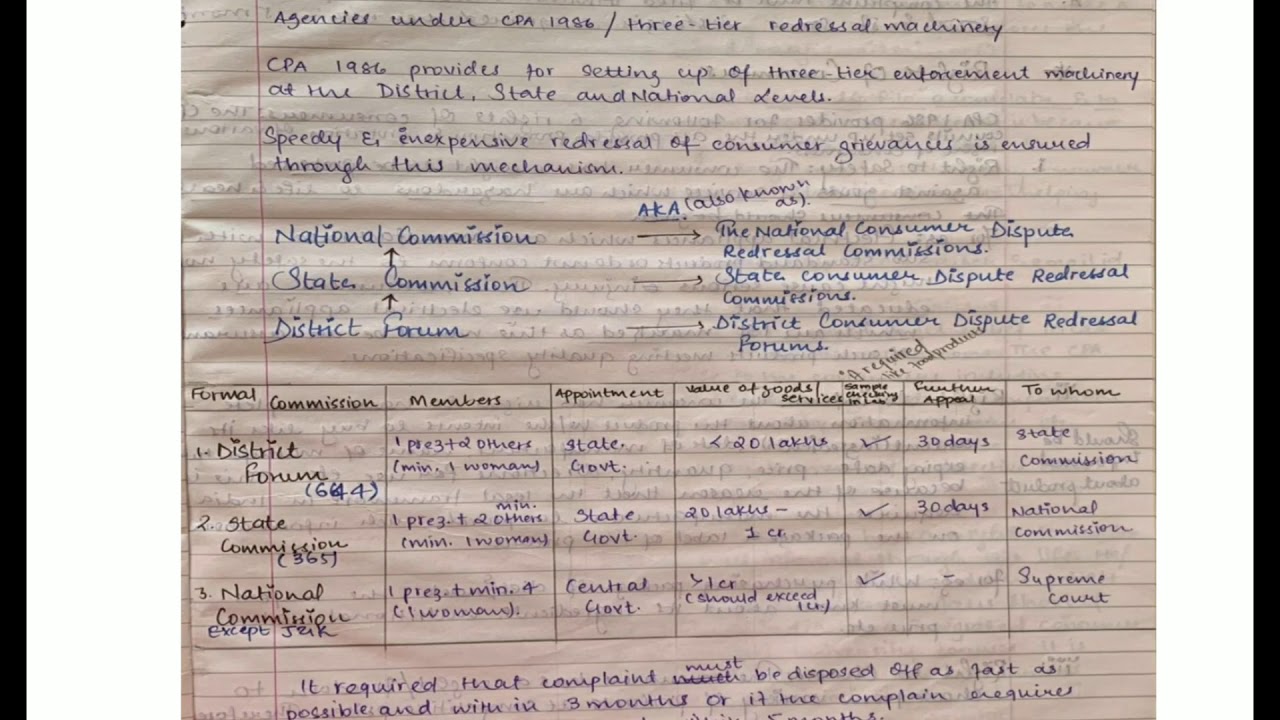 Agencies under CPA 1986 / three-tier redressal machinery
CPA 1986 provides for setting up of three-tier enforcement machinery
at the District, State and National Levels.
Speedy & inexpensive redressal of consumer grievances is ensured
through this mechanism.
AKA (also known as).
National Commission → The National Consumer Dispute
Redressal Commissions.
↑
State Commission → State Consumer Dispute Redressal
Commissions.
↑
District Forum → District Consumer Dispute Redressal
Forums.
*A required
like food products
Formal Commission Members Appointment Value of goods/ services Sample checking in Lab Further Appeal To whom
1. District 1 prez + 2 others State. < 20 lakhs ✓ 30 days State
Forum (min. 1 woman) Govt. Commission
(644)
min.
2. State 1 prez. + 2 others State 20 lakhs - ✓ 30 days National
Commission (min. 1 woman) Govt. 1 cr Commission
(365)
3. National 1 prez + min. 4 Central >1cr ✓ - Supreme
Commission (1 woman). Govt. (should exceed 1cr.) Court
Except J&K
It required that complaint must be disposed off as fast as
possible and with in 3 months or if the complain requires
5 months.